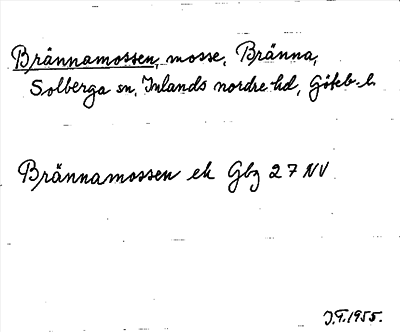 Brännamossen, mosse, Bränna,
Solberga sn, Inlands nordre hd, Göteb. l.
Brännamossen ek Gbg 27 NV
J.T.1955.